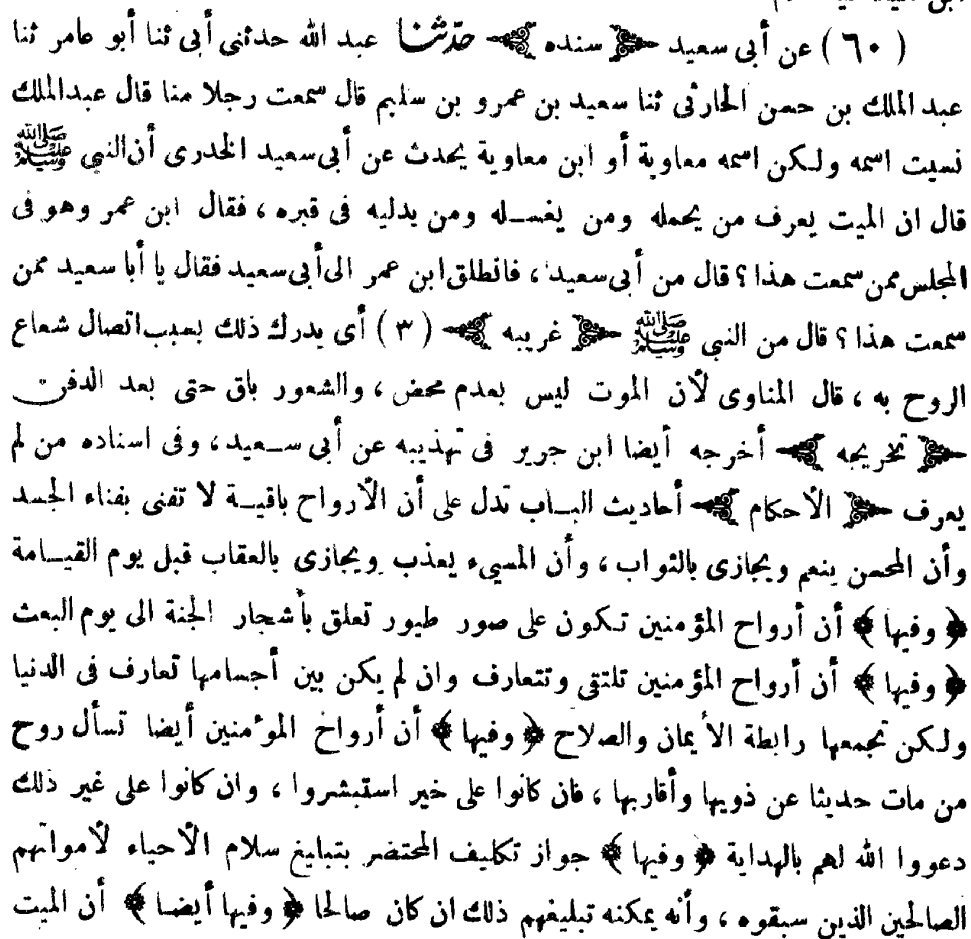 ( ٦٠ ) عن أبى سعيد ﴿ سنده ﴾ حدّثنا عبد الله حدثنى أبى ثنا أبو عامر ثنا
عبد الملك بن حسن الحارثى ثنا سعيد بن عمرو بن سليم قال سمعت رجلا منا قال عبد الملك
نسيت اسمه ولكن اسمه معاوية أو ابن معاوية يحدث عن أبى سعيد الخدرى أن النبى ﷺ
قال ان الميت يعرف من يحمله ومن يغسله ومن يدليه فى قبره ، فقال ابن عمر وهو فى
المجلس ممن سمعت هذا ؟ قال من أبى سعيد ، فانطلق ابن عمر الى أبى سعيد فقال يا أبا سعيد ممن
سمعت هذا ؟ قال من النبي ﷺ ﴿ غريبه ﴾ ( ٣ ) أى يدرك ذلك بسبب اتصال شعاع
الروح به ، قال المناوى لأن الموت ليس بعدم محض ، والشعور باق حتى بعد الدفن
﴿ تخريجه ﴾ أخرجه أيضا ابن جرير فى تهذيبه عن أبى سعيد ، وفى اسناده من لم
يعرف ﴿ الأحكام ﴾ أحاديث الباب تدل على أن الأرواح باقية لا تفنى بفناء الجسد
وأن المحسن ينعم ويجازى بالثواب ، وأن المسيء يعذب ويجازى بالعقاب قبل يوم القيامة
﴿ وفيها ﴾ أن أرواح المؤمنين تكون على صور طيور تعلق بأشجار الجنة الى يوم البعث
﴿ وفيها ﴾ أن أرواح المؤمنين تلتقى وتتعارف وان لم يكن بين أجسامها تعارف فى الدنيا
ولكن تجمعها رابطة الأيمان والصلاح ﴿ وفيها ﴾ أن أرواح المؤمنين أيضا تسأل روح
من مات حديثا عن ذويها وأقاربها ، فان كانوا على خير استبشروا ، وان كانوا على غير ذلك
دعووا الله لهم بالهداية ﴿ وفيها ﴾ جواز تكليف المحتضر بتبليغ سلام الأحياء لأمواتهم
الصالحين الذين سبقوه ، وأنه يمكنه تبليغهم ذلك ان كان صالحا ﴿ وفيها أيضا ﴾ أن الميت